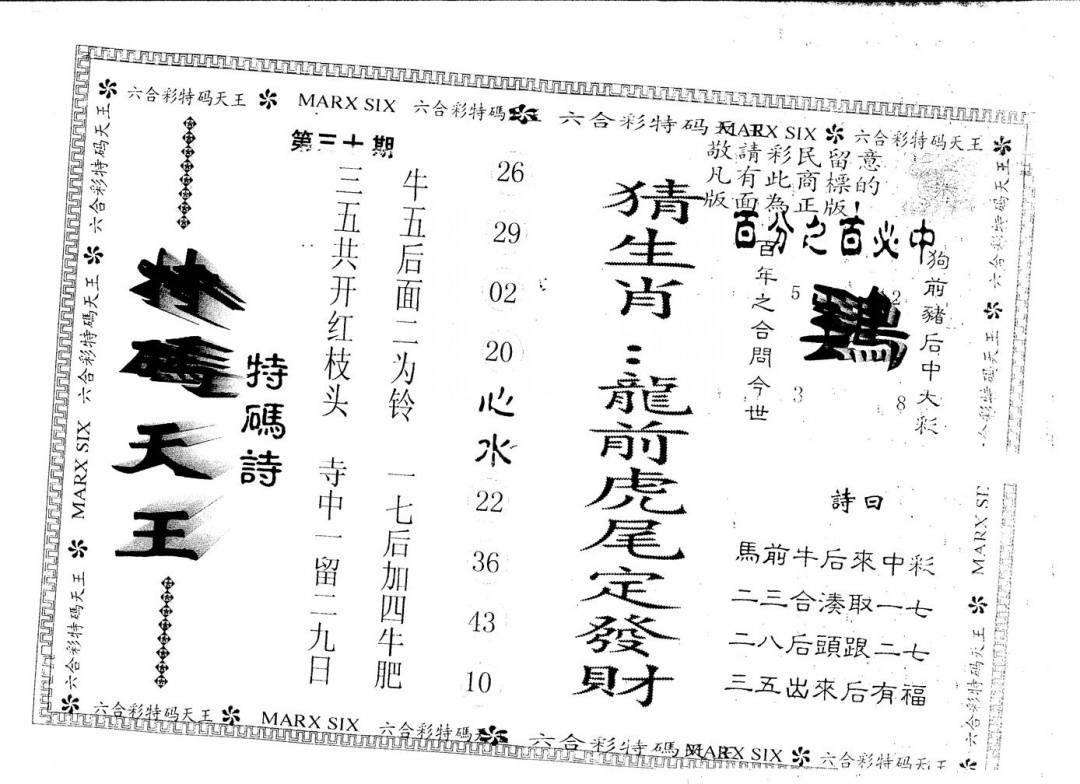 六合彩特码天王 MARX SIX 六合彩特碼 六合彩特码天王 MARX SIX 六合彩特码天王
敬請彩民留意
凡有此商標的
版面為正版!
百分之百必中
狗前豬后中大彩
百年之合問今世
5 2
3 8
詩曰
馬前牛后來中彩
二三合湊取一七
二八后頭跟二七
三五出來后有福
猜生肖:龍前虎尾定發財
26
29
02
20
心水
22
36
43
10
第三十期
牛五后面二为铃 一七后加四牛肥
三五共开红枝头 寺中一留二九日
特碼詩
特碼天王
六合彩特码天王
六合彩特碼天王
MARX SIX
六合彩特码天王
六合彩特码天王
MARX SI
六合彩特码天王
六合彩特码天王 MARX SIX 六合彩特碼 六合彩特碼天王 MARX SIX 六合彩特码天王